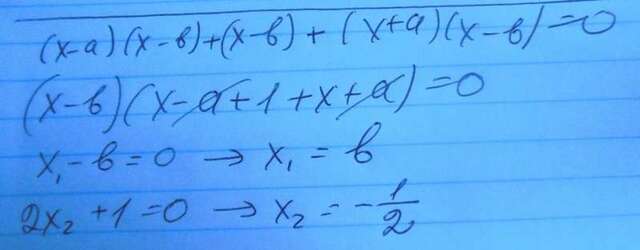 (x-a)(x-b)+(x-b)+(x+a)(x-b)=0
(x-b)(x-a+1+x+a)=0
x₁-b=0 → x₁=b
2x₂+1=0 → x₂=-1/2